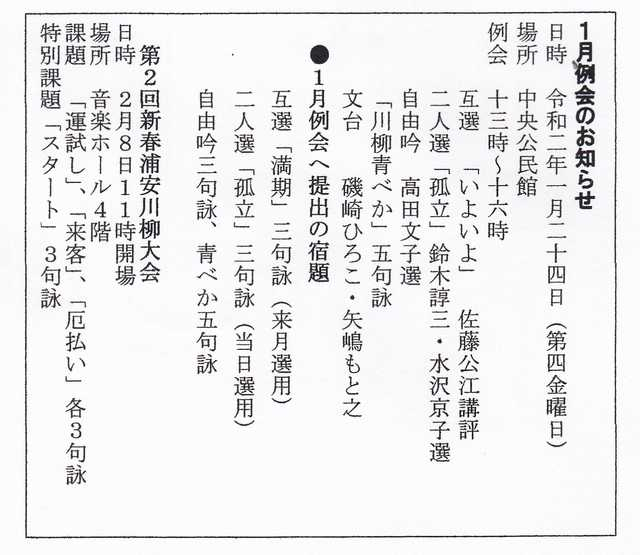 1月例会のお知らせ
日時　令和二年一月二十四日（第四金曜日）
場所　中央公民館
例会　十三時～十六時
互選　「いよいよ」　佐藤公江講評
二人選「孤立」鈴木諄三・水沢京子選
自由吟　高田文子選
「川柳青べか」五句詠
文台　磯崎ひろこ・矢嶋もと之
●1月例会へ提出の宿題
互選「満期」三句詠（来月選用）
二人選「孤立」三句詠（当日選用）
自由吟三句詠、青べか五句詠
第2回新春浦安川柳大会
日時　2月8日11時開場
場所　音楽ホール4階
課題　「運試し」、「来客」、「厄払い」各3句詠
特別課題「スタート」3句詠